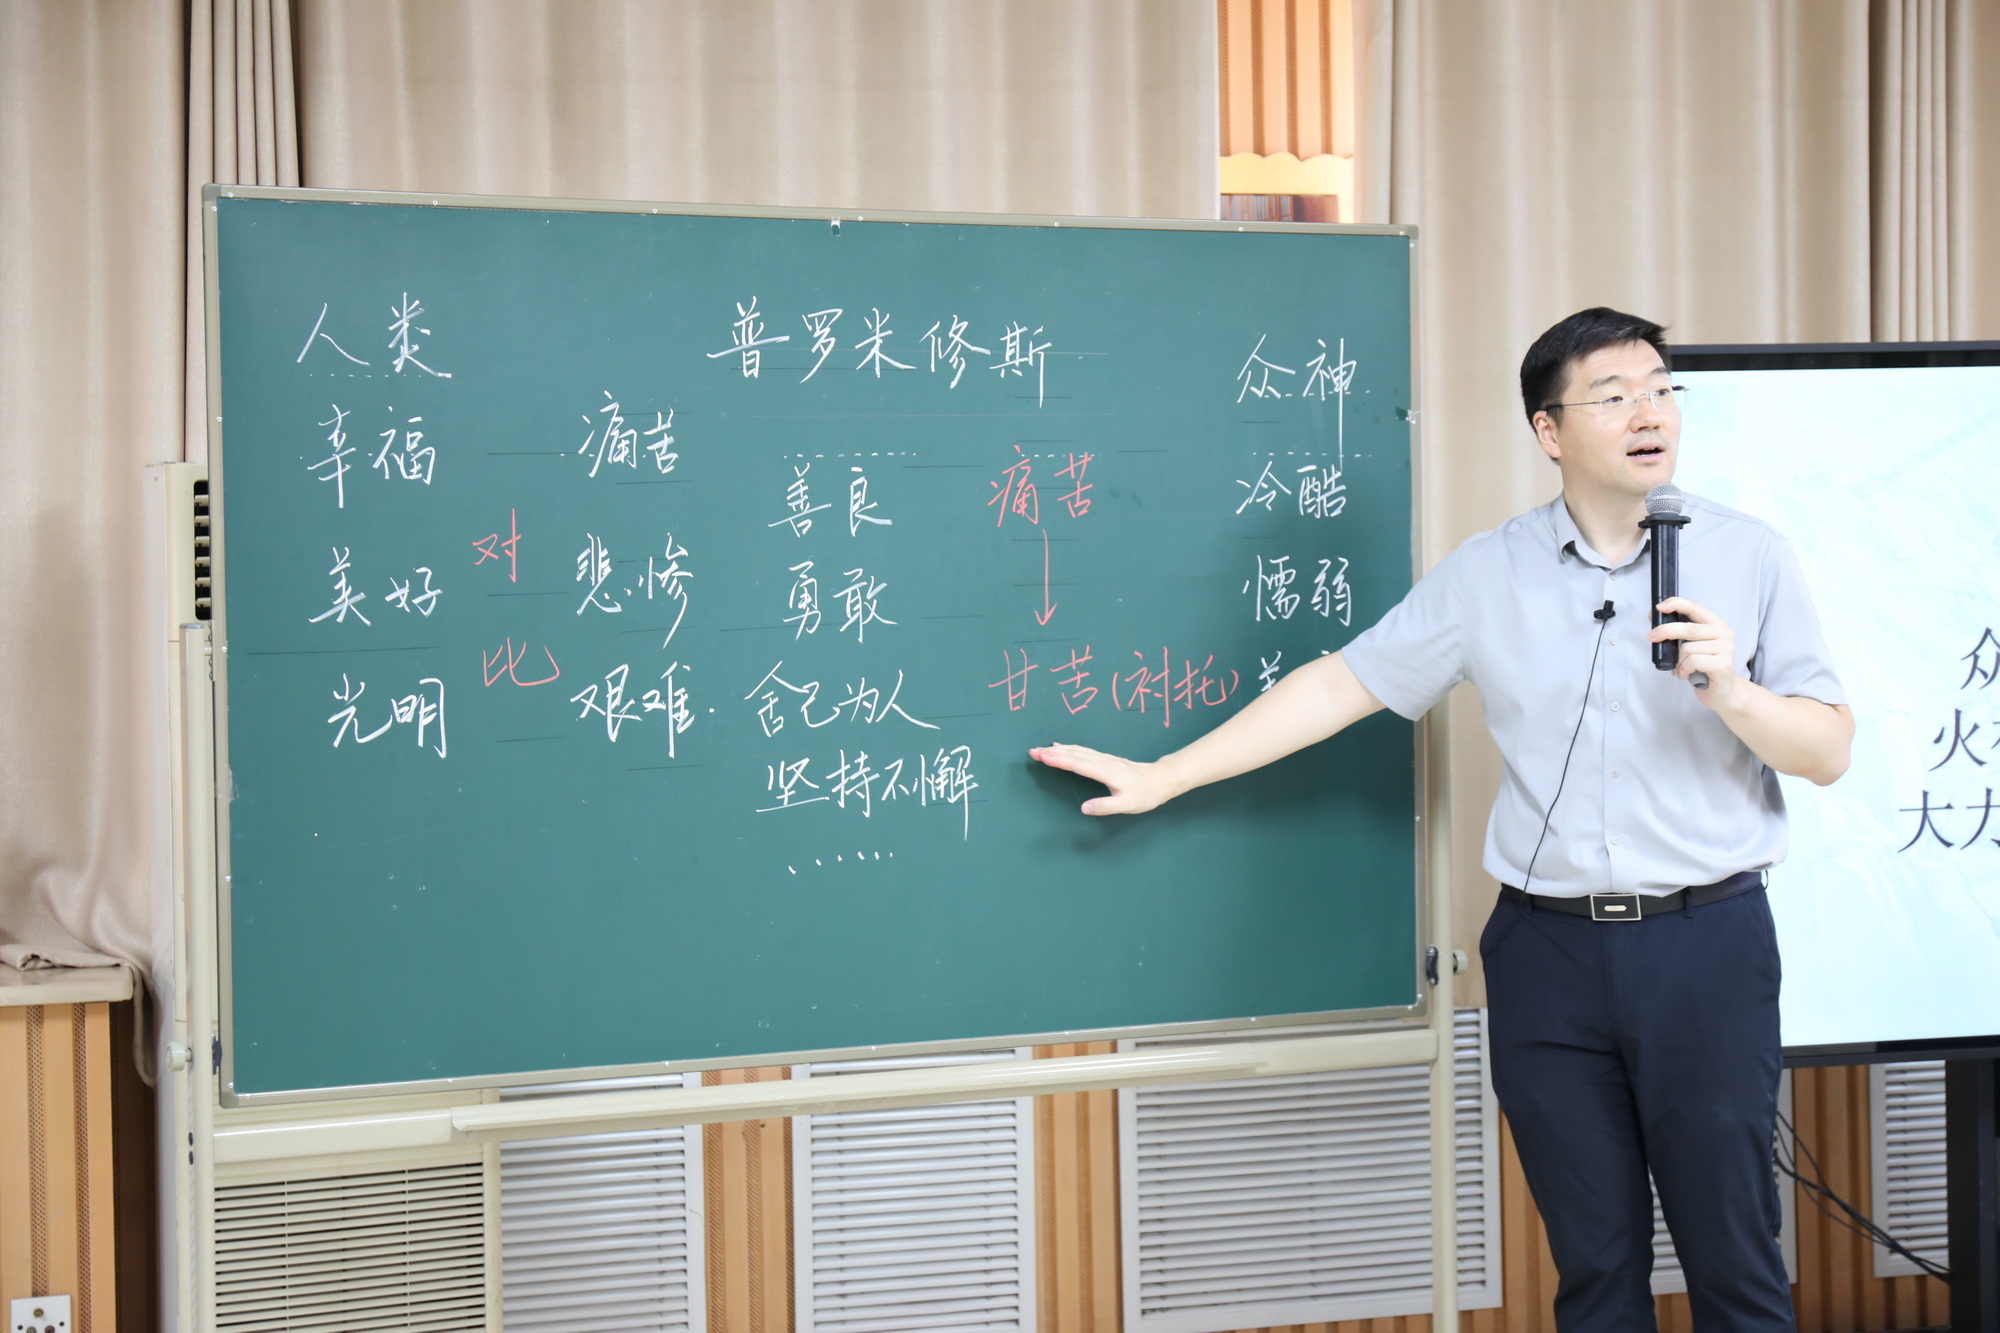 人类 普罗米修斯 众神
幸福 痛苦 善良 痛苦 冷酷
美好 对 悲惨 勇敢 懦弱
光明 比 艰难 舍己为人 甘苦(衬托)
坚持不懈
……
众
火
大力